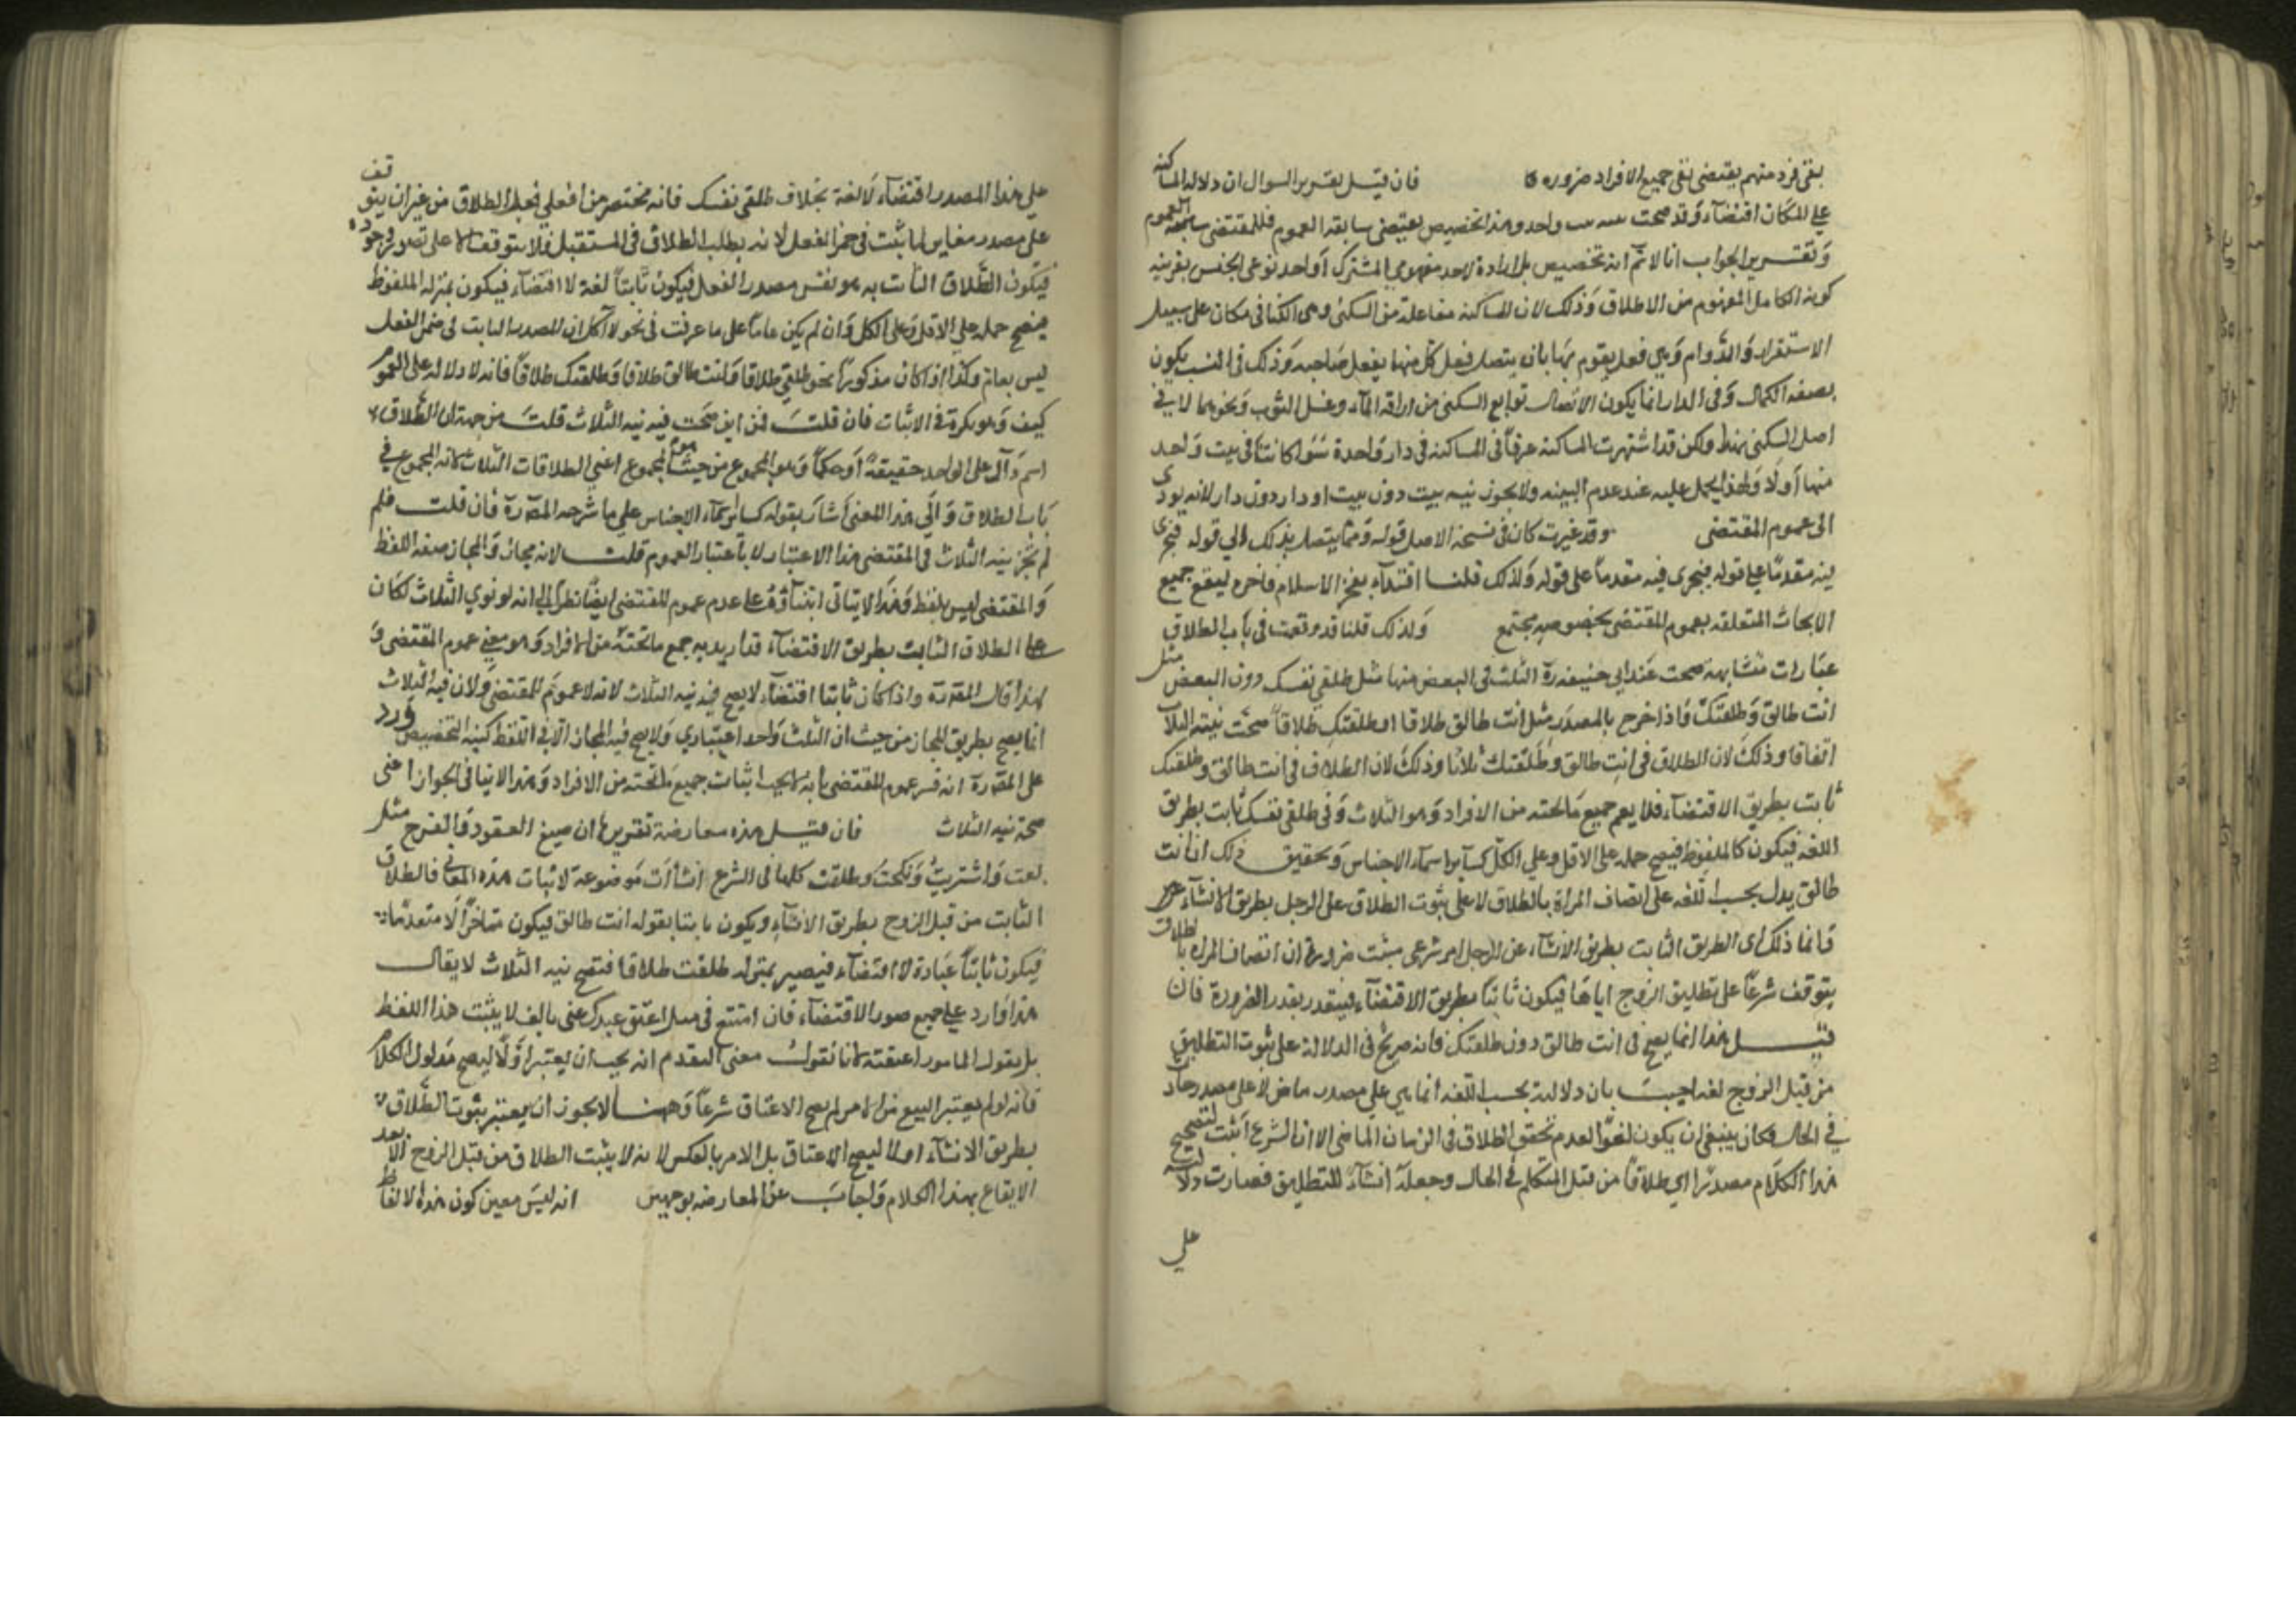 بقى فرد منهم يقتضى نفى جميع الافراد ضروره فان قيل تقرير السوال ان دلاله المساكنه
على المكان اقتضاء وقد صحت واحد وهذا تخصيص يقتضى سابقه العموم فللمقتضى
وتقرير الجواب انا لا نم انه تخصيص بل ارادة لاحد مفهومى المشترك او احد نوعى الجنس بقرينه
كونه الكامل المفهوم من الاطلاق وذلك لان المساكنه مفاعلة من السكنى وهى المكث فى مكان على سبيل
الاستقرار والدوام وهى فعل يقوم بهما بان يتصل فعل كل منهما بفعل صاحبه وذلك فى البيت يكون
بصفه الكمال وفى الدار انما يكون الاتصال توابع السكنى من اراقه الماء وغسل الثوب ونحوهما لا فى
اصل السكنى فقط ولكن قد اشتهرت المساكنة عرفا فى المساكنه فى دار واحدة سوا كانتا فى بيت واحد
منها او لا ولهذا يحمل عليه عند عدم البينه ولا يجوز نيه بيت دون بيت او دار دون دار لانه يودى
الى عموم المقتضى وقد غيرت كان فى نسخة الاصل قوله ومما يتصل بذلك الى قوله فيجرى
فيه مقدما على قوله فيجرى فيه مقدما على قوله ولذلك قلنا اقتداء بفخر الاسلام فاخره ليقع جميع
الابحاث المتعلقه بعموم المقتضى بخصوصه مجتمع ولذلك قلنا قد وقعت فى باب الطلاق
عبارات متشابهة صحت عند ابى حنيفة رة الثلث فى البعض منها مثل طلقى نفسك دون البعض مثل
انت طالق وطلقتك واذا خرج بالمصدر مثل انت طالق طلاقا او طلقتك طلاقا صحت نيته الثلاث
اتفاقا وذلك لان الطلاق فى انت طالق وطلقتك ثلاثا وذلك لان الطلاق فى انت طالق وطلقتك
ثابت بطريق الاقتضاء فلا يعم جميع ما تحته من الافراد وهو الثلاث وفى طلقى نفسك ثابت بطريق
اللغه فيكون كالملفوظ فيصح حمله على الاقل وعلى الكل كسائر اسماء الاجناس وتحقيق ذلك ان انت
طالق يدل بحسب اللغه على اتصاف المراة بالطلاق لا على ثبوت الطلاق على الرجل بطريق الانشاء
وانما ذلك اى الطريق الثابت بطريق الانشاء عن الرجل امر شرعى ثبت ضرورة ان اتصاف المراه بالطلاق
يتوقف شرعا على تطليق الزوج اياها فيكون ثابتا بطريق الاقتضاء فيتقدر بقدر الضرورة فان
قيل هذا انما يصح فى انت طالق دون طلقتك فانه صريح فى الدلالة على ثبوت التطليق
من قبل الزوج لغه اجيب بان دلالته بحسب اللغه انما هى على مصدر ماض لا على مصدر حادث
فى الحال فكان ينبغى ان يكون لغوا لعدم تحقق الطلاق فى الزمان الماضى الا ان الشرع اثبت لتصحيح
هذا الكلام مصدرا اى طلاقا من قبل المتكلم فى الحال وجعله انشاء للتطليق فصارت دلالته
على
على هذا المصدر اقتضاء لا لغة بخلاف طلقى نفسك فانه مختصر من افعلى فعل الطلاق من غير ان يتوقف
على مصدر مغاير لما ثبت فى ضمن الفعل لانه يطلب الطلاق فى المستقبل فلا يتوقف الا على تصور وجوده
فيكون الطلاق الثابت به هو نفس مصدر الفعل فيكون ثابتا لغة لا اقتضاء فيكون بمنزله الملفوظ
فيصح حمله على الاقل وعلى الكل وان لم يكن عاما على ما عرفت فى نحو لا آكل ان المصدر الثابت فى ضمن الفعل
ليس بعام وكذا اذا كان مذكورا نحو طلقى طلاقا وانت طالق طلاقا وطلقتك طلاقا فانه لا دلاله على العموم
كيف وهو نكرة فى الاثبات فان قلت فمن اين صحت فيه نيه الثلاث قلت من جهة ان الطلاق
اسم دال على الواحد حقيقة او حكما وهو المجموع من حيث هو المجموع اعنى الطلاقات الثلاث لانه المجموع فى
باب الطلاق والى هذا المعنى اشار بقوله كسائر اسماء الاجناس على ما شرحه المصرة فان قلت فلم
لم تجز نيه الثلاث فى المقتضى هذا الاعتبار لا باعتبار العموم قلت لانه مجاز والمجاز صفه اللفظ
والمقتضى ليس بلفظ وهذا لا ينافى ابتناؤه على عدم عموم المقتضى ايضا نظرا الى انه لو نوى الثلاث لكان
الطلاق الثابت بطريق الاقتضاء قد اريد به جميع ما تحته من الافراد وهو معنى عموم المقتضى
لهذا قال المصرة واذا كان ثابتا اقتضاء لا يصح فيه نيه الثلاث لانه لا عموم للمقتضى ولان نيه الثلاث
انما يصح بطريق المجاز من حيث ان الثلث واحد اعتبارى ولا يصح فيه المجاز الا فى اللفظ كنيه التخصيص ورد
على المصرة انه فسر عموم المقتضى بانه لا يجب اثبات جميع ما تحته من الافراد وهذا لا ينافى الجواز اعنى
صحة نيه الثلاث فان قيل هذه معارضة تقريرها ان صيغ العقود والفسوخ مثل
بعت واشتريت ونكحت وطلقت كلها فى الشرع انشاات موضوعة لاثبات هذه المعانى فالطلاق
الثابت من قبل الزوج بطريق الانشاء ويكون ثابتا بقوله انت طالق فيكون متاخرا لا متقدما
فيكون ثابتا عبارة لا اقتضاء فيصير بمنزله طلقت طلاقا فتصح نيه الثلاث لا يقال
هذا وارد على جميع صور الاقتضاء فان امتنع فى مثل اعتق عبدك عنى بالف لا يثبت هذا اللفظ
بل بقول المامور اعتقته لانا نقول معنى التقدم انه يجب ان يعتبر اولا ليصح مدلول الكلام
فانه لو لم يعتبر البيع من الامر لم يصح الاعتاق شرعا وههنا لا يجوز ان يعتبر ثبوت الطلاق
بطريق الانشاء اولا ليصح الاعتاق بل الامر بالعكس لانه لا يثبت الطلاق من قبل الزوج الا بعد
الايقاع بهذا الكلام واجاب عن المعارضه بوجهين انه ليس معنى كون هذه الالفاظ